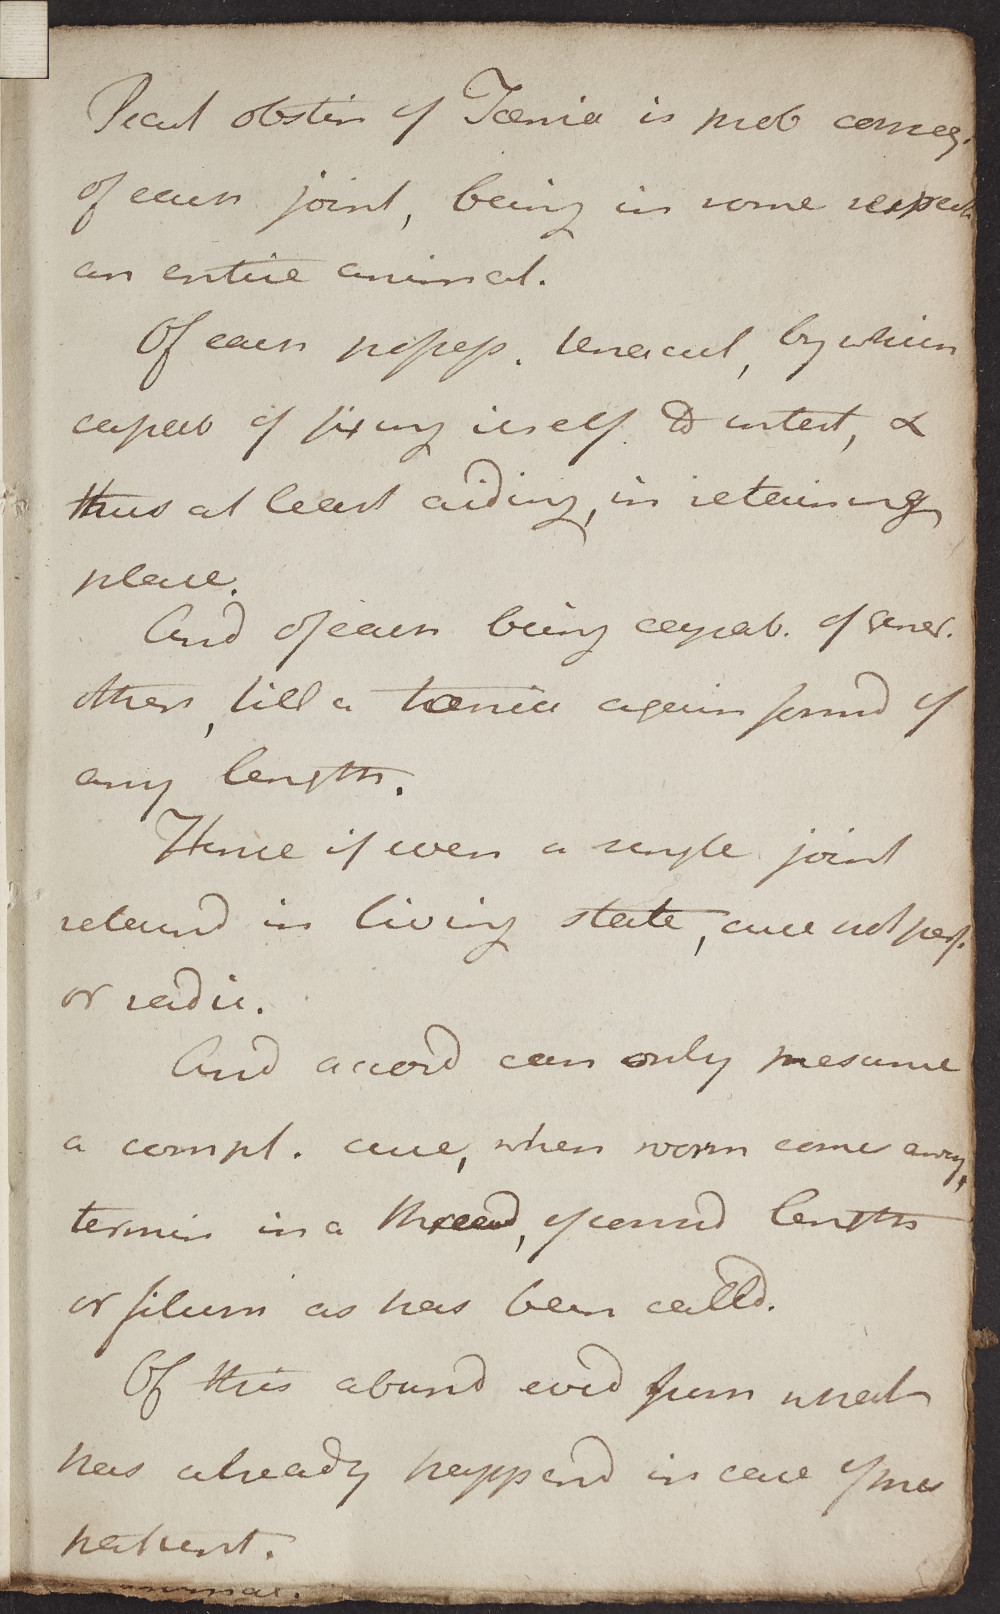 Pecul obstin of Tænia is prob conseq.
of each joint, being in some respects
an entire animal.
Of each possess. tenacul, by which
capab of fixing itself to intest, &
thus at least aiding, in retaining
place.
And of each being capab. of gener.
others, till a tænia again formd of
any length.
Hence if even a single joint
retaind in living state, cure not perf.
or radic.
And accord can only presume
a compl. cure, when worm comes away,
termin in a thread, of pound length
or filum as has been calld.
Of this abund evid from what
has already happend in case of pres
patient.
animal.